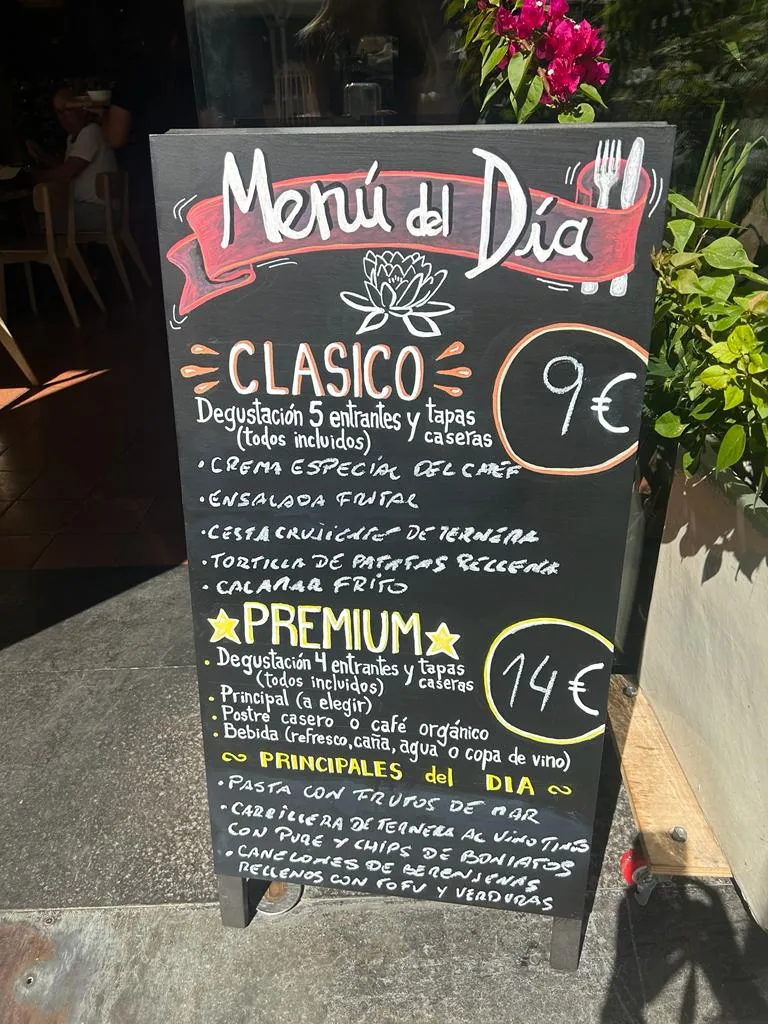 Menú del Día
CLASICO
9€
Degustación 5 entrantes y tapas
(todos incluidos) caseras
• CREMA ESPECIAL DEL CHEF
• ENSALADA FRUTAL
• CESTA CRUJIENTE DE TERNERA
• TORTILLA DE PATATAS RELLENA
• CALAMAR FRITO
PREMIUM
14€
• Degustación 4 entrantes y tapas
(todos incluidos) caseras
• Principal (a elegir)
• Postre casero o café orgánico
• Bebida (refresco, caña, agua o copa de vino)
~ PRINCIPALES del DIA ~
• PASTA CON FRUTOS DE MAR
• CARRILLERA DE TERNERA AL VINO TINTO
CON PURE Y CHIPS DE BONIATOS
• CANELONES DE BERENJENAS
RELLENOS CON TOFU Y VERDURAS